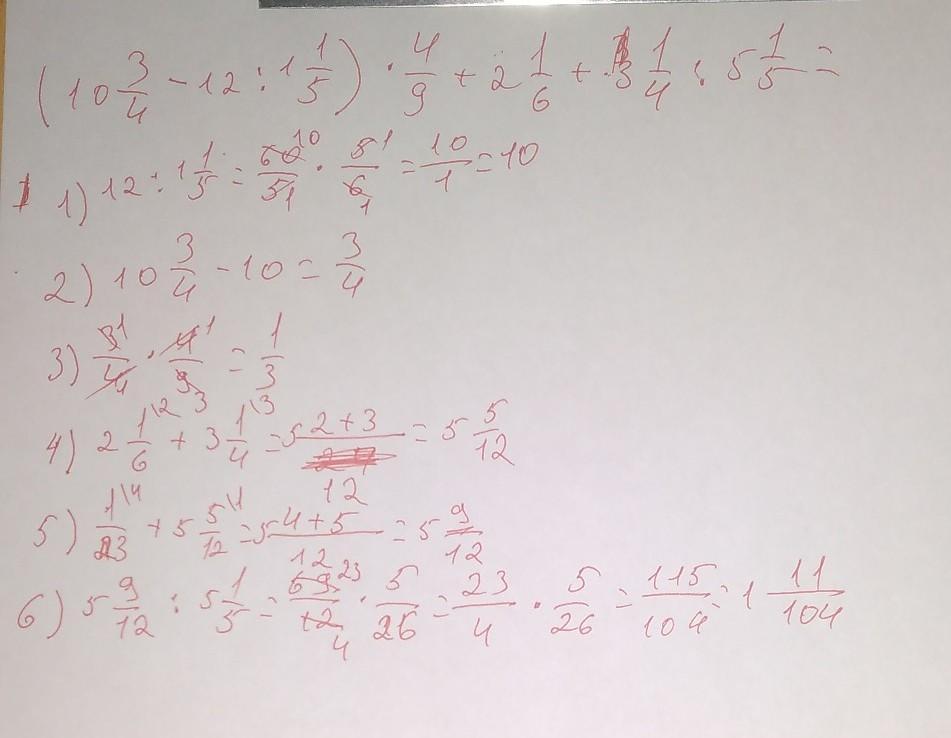 (10 3/4 - 12 : 1 1/5) · 4/9 + 2 1/6 + 3 1/4 : 5 1/5 =
1) 12 : 1 1/5 = 60/5 · 5/6 = 10/1 = 10
2) 10 3/4 - 10 = 3/4
3) 3/4 · 4/9 = 1/3
4) 2 1/6 + 3 1/4 = 5 2+3/12 = 5 5/12
5) 1/3 + 5 5/12 = 5 4+5/12 = 5 9/12
6) 5 9/12 : 5 1/5 = 69/12 · 5/26 = 23/4 · 5/26 = 115/104 = 1 11/104